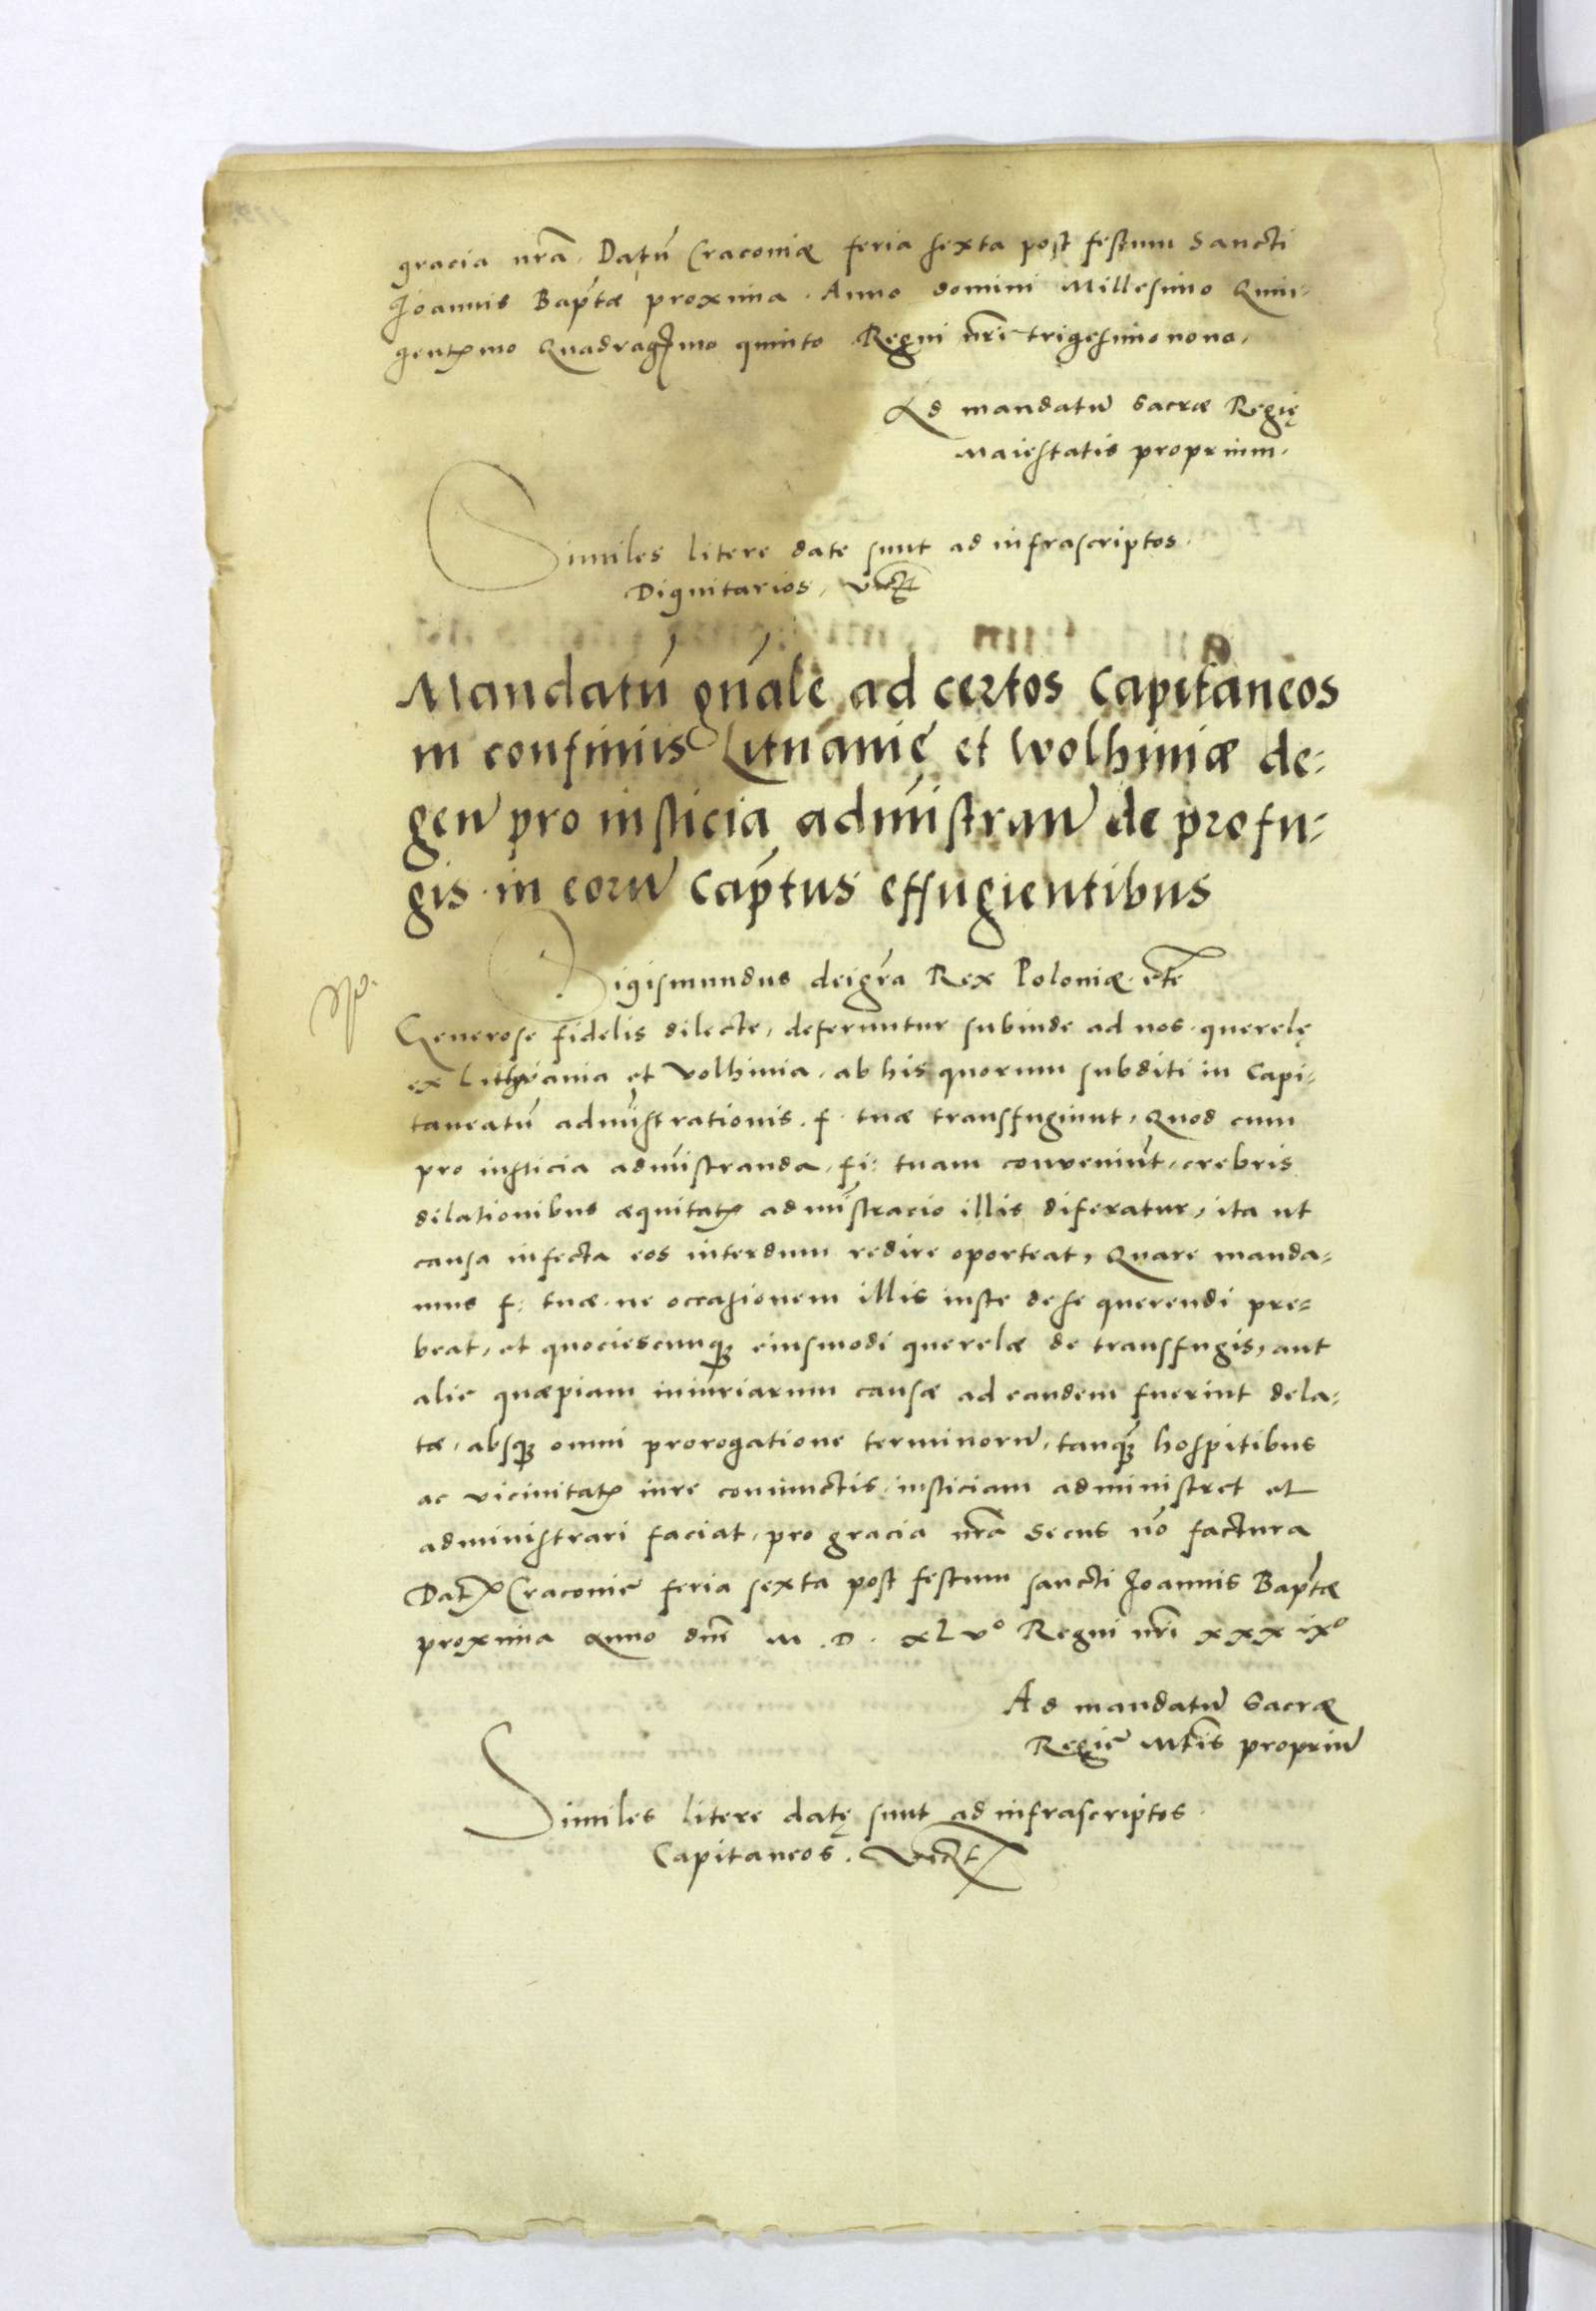 gracia nrã. Datũ Craconiæ feria sexta post festum Sancti
Joannis Baptæ proxima. Anno domini Millesimo Quin-
gentmo Quadragmo quinto Regni nri trigesimonono.
Ad mandatũ Sacræ Regię
Maiestatis proprium.
Similes litere date sunt ad infrascriptos
Dignitarios, vczt
Mandatũ gnale ad certos Capitaneos
in confiniis Lituanię et Wolhiniæ de-
gen pro iusticia admistran de profu-
gis in eorũ captus effugientibus
Sigismundus dei gra Rex Poloniæ etc
Generose fidelis dilecte, deferuntur subinde ad nos querelę
ex Lithvania et Volhinia, ab his quorum subditi in Capi-
taneatũ admistrationis f. tuæ transfugiunt, Quod cum
pro iusticia admistranda, fi: tuam conveniũt, crebris
dilationibus æquitatis admistracio illis diferatur, ita ut
causa infecta eos interdum redire oporteat, Quare manda-
mus f: tuæ ne occasionem illis iuste de se querendi pre-
beat, et quociescunq; eiusmodi querelæ de transfugis, aut
alie quæpiam iniuriarum causæ ad eandem fuerint dela-
tæ, absq; omni prorogatione terminorũ, tanq; hospitibus
ac vicinitatis iure coniunctis, iusticiam administret et
administrari faciat, pro gracia nrã secus nõ factura
Dat Craconie feria sexta post festum sancti Joannis Baptæ
proxima anno dni M. D. XLVº Regni nri xxxixº
Ad mandatũ Sacræ
Regie Mtis propriũ
Similes litere datę sunt ad infrascriptos
Capitaneos. Vczt